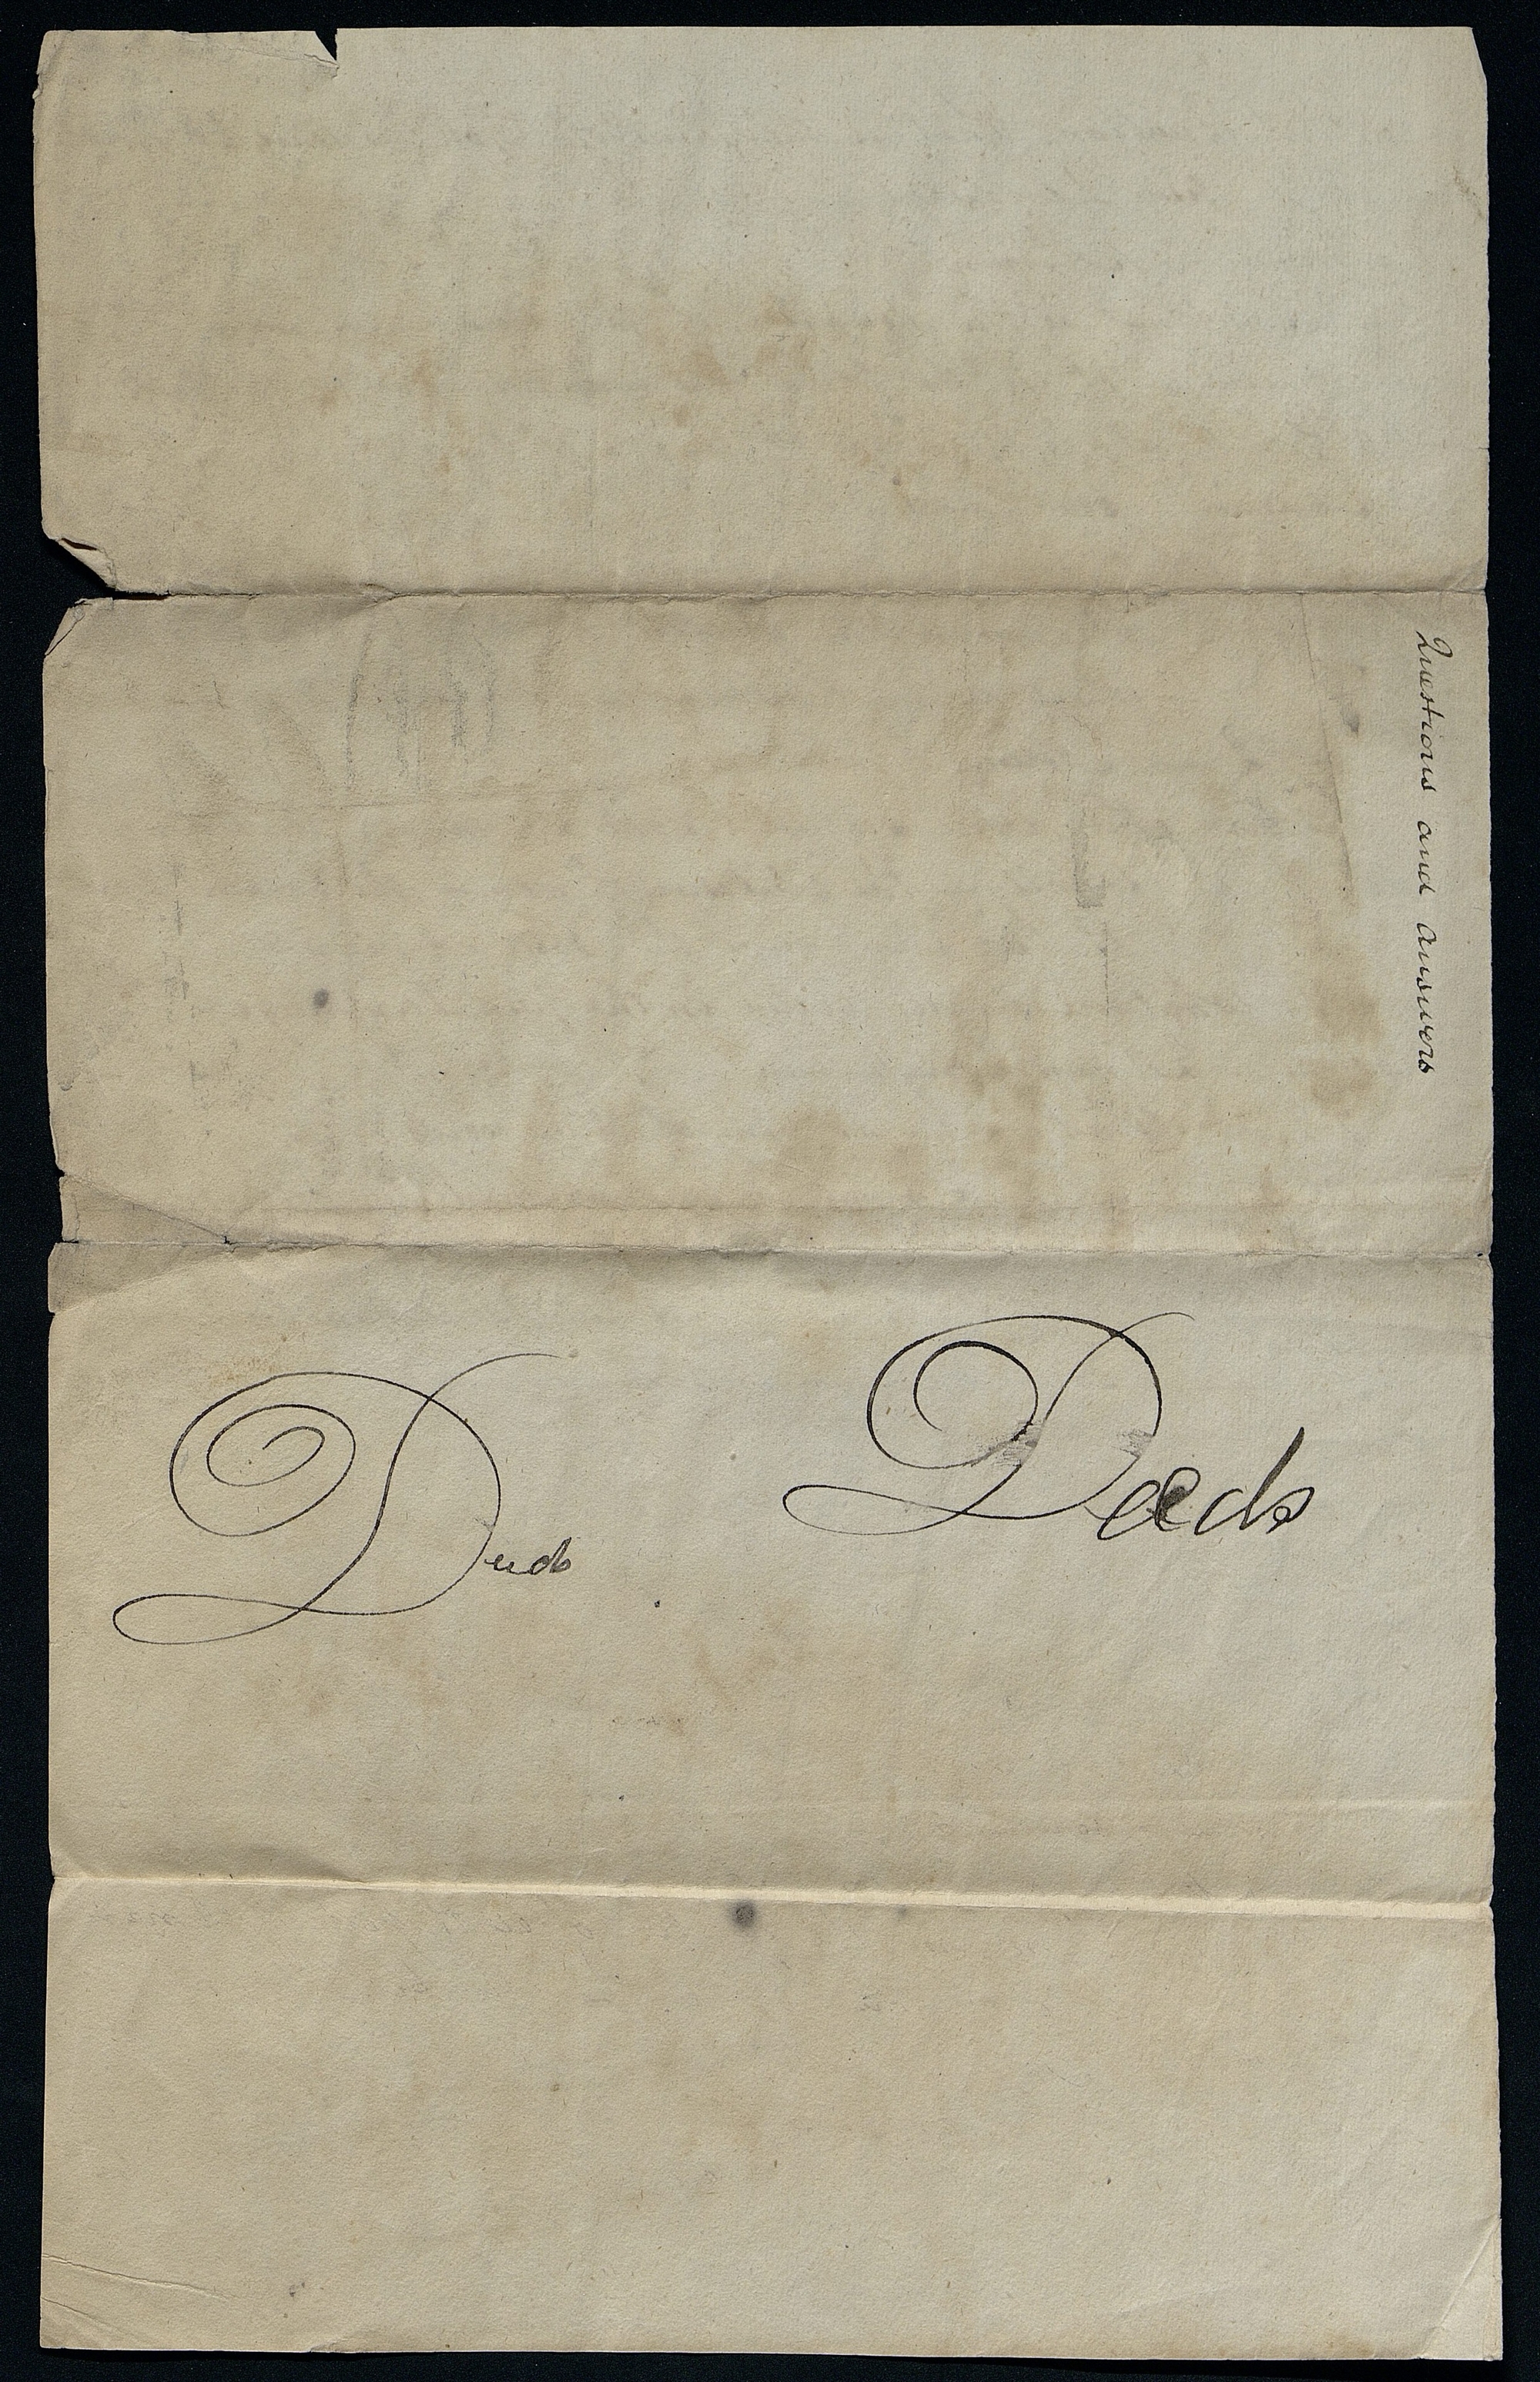 Questions and answers
Deeds
Deeds